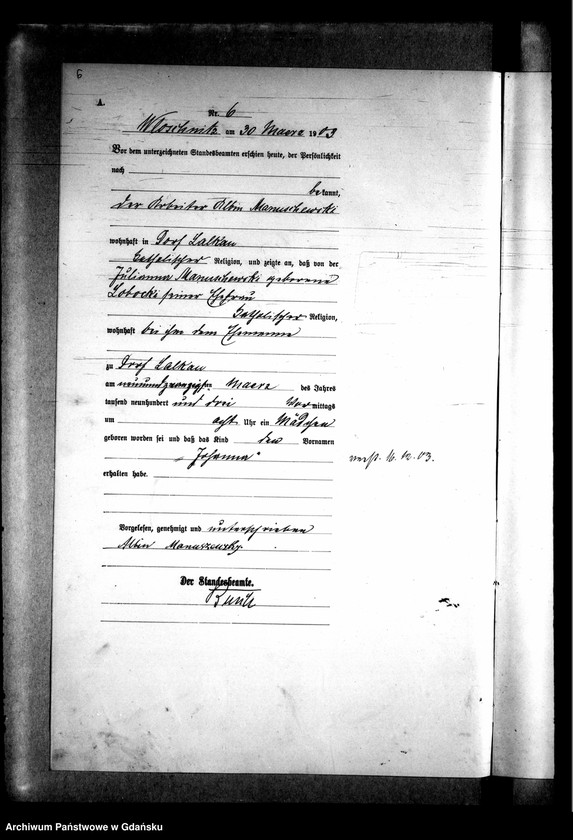 6
A.
Nr. 6
am 30 Maerz 1903
Vor dem unterzeichneten Standesbeamten erschien heute, der Persönlichkeit
nach
bekannt,
der Arbeiter Albin Manuschewski
wohnhaft in Dorf Lalkau
katholischer Religion, und zeigte an, daß von der
Julianna Manuschewski geborene
Lobocki seiner Ehefrau
katholischer Religion,
wohnhaft bei ihm dem Ehemanne
zu Dorf Lalkau
am neunundzwanzigsten Maerz des Jahres
tausend neunhundert und drei Vormittags
um acht Uhr ein Mädchen
geboren worden sei und daß das Kind den Vornamen
„Johanna“
verst. 16.12.03.
erhalten habe.
Vorgelesen, genehmigt und unterschrieben
Albin Manuszewsky
Der Standesbeamte.
Archiwum Państwowe w Gdańsku